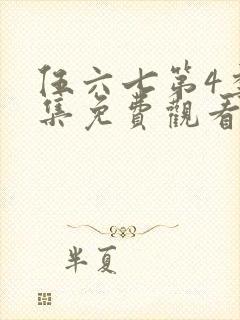 伍六七第4季
集免費觀看
半夏